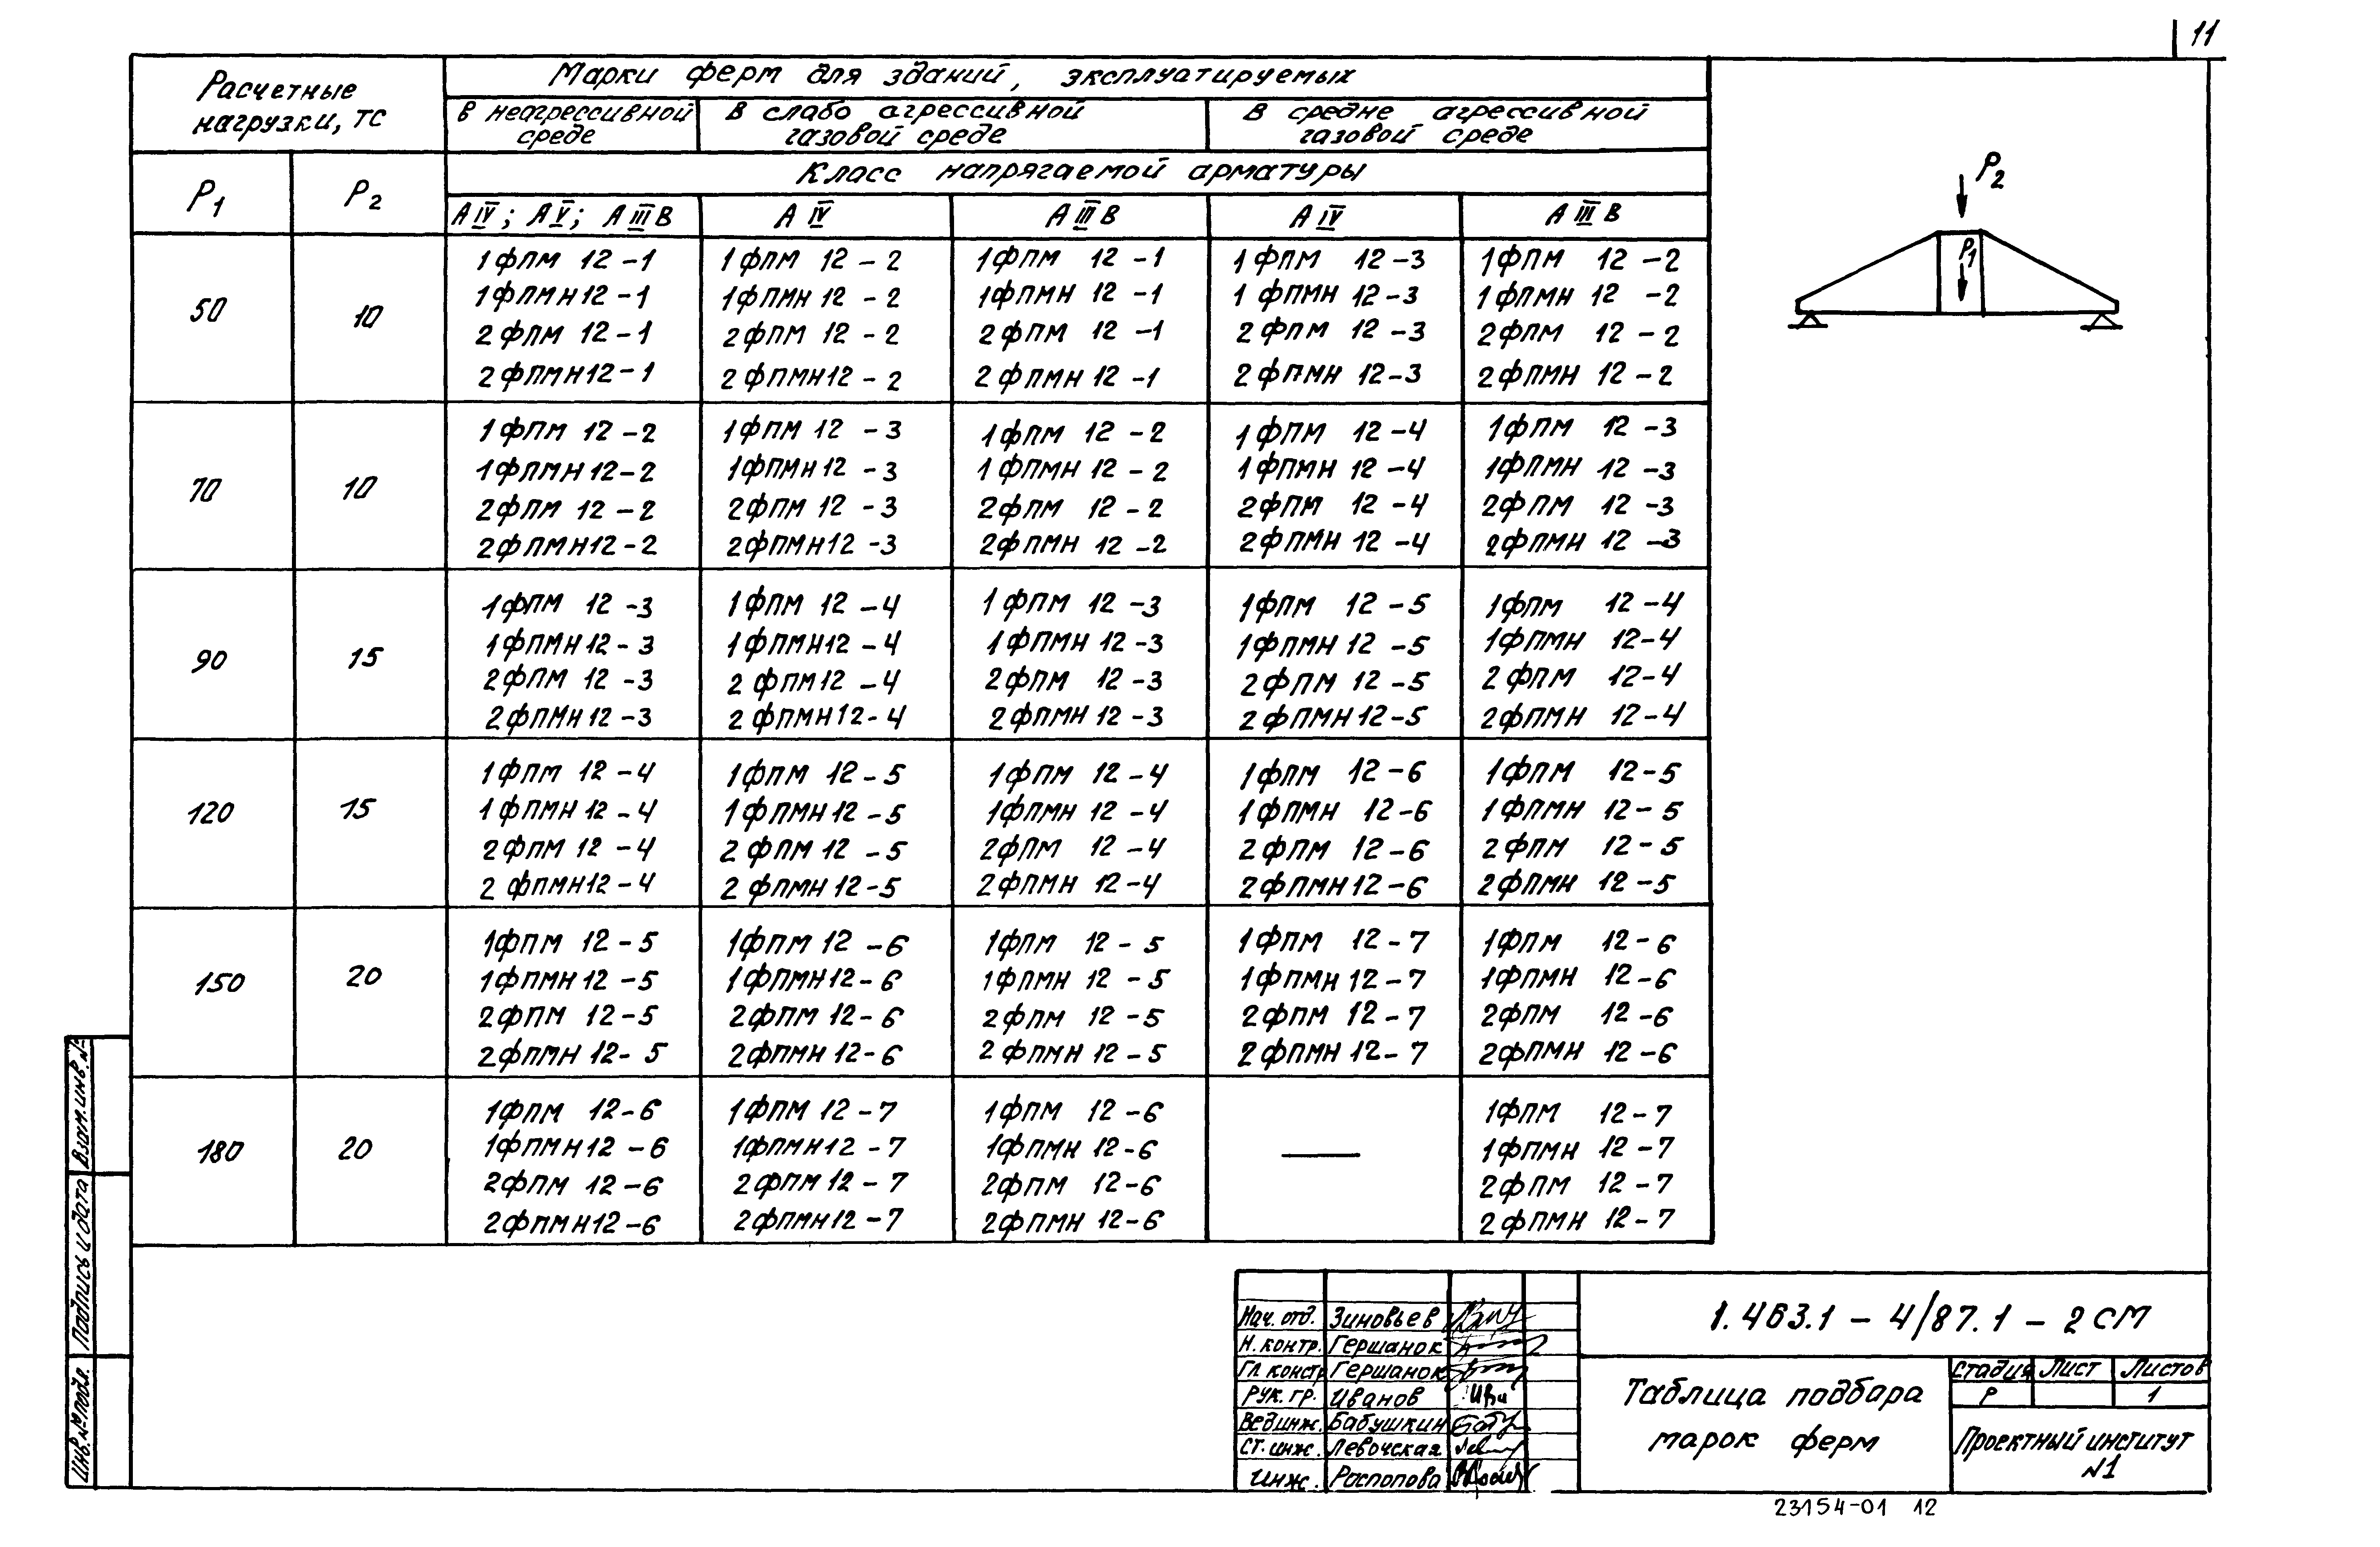 11
Расчетные нагрузки, тс
Марки ферм для зданий, эксплуатируемых
в неагрессивной среде
в слабо агрессивной газовой среде
в средне агрессивной газовой среде
Класс напрягаемой арматуры
P1 P2
А IV; А V; А III В А IV А III В А IV А III В
50 10
1ФПМ 12-1 1ФПМ 12-2 1ФПМ 12-1 1ФПМ 12-3 1ФПМ 12-2
1ФПМН 12-1 1ФПМН 12-2 1ФПМН 12-1 1ФПМН 12-3 1ФПМН 12-2
2ФПМ 12-1 2ФПМ 12-2 2ФПМ 12-1 2ФПМ 12-3 2ФПМ 12-2
2ФПМН 12-1 2ФПМН 12-2 2ФПМН 12-1 2ФПМН 12-3 2ФПМН 12-2
70 10
1ФПМ 12-2 1ФПМ 12-3 1ФПМ 12-2 1ФПМ 12-4 1ФПМ 12-3
1ФПМН 12-2 1ФПМН 12-3 1ФПМН 12-2 1ФПМН 12-4 1ФПМН 12-3
2ФПМ 12-2 2ФПМ 12-3 2ФПМ 12-2 2ФПМ 12-4 2ФПМ 12-3
2ФПМН 12-2 2ФПМН 12-3 2ФПМН 12-2 2ФПМН 12-4 2ФПМН 12-3
90 15
1ФПМ 12-3 1ФПМ 12-4 1ФПМ 12-3 1ФПМ 12-5 1ФПМ 12-4
1ФПМН 12-3 1ФПМН 12-4 1ФПМН 12-3 1ФПМН 12-5 1ФПМН 12-4
2ФПМ 12-3 2ФПМ 12-4 2ФПМ 12-3 2ФПМ 12-5 2ФПМ 12-4
2ФПМН 12-3 2ФПМН 12-4 2ФПМН 12-3 2ФПМН 12-5 2ФПМН 12-4
120 15
1ФПМ 12-4 1ФПМ 12-5 1ФПМ 12-4 1ФПМ 12-6 1ФПМ 12-5
1ФПМН 12-4 1ФПМН 12-5 1ФПМН 12-4 1ФПМН 12-6 1ФПМН 12-5
2ФПМ 12-4 2ФПМ 12-5 2ФПМ 12-4 2ФПМ 12-6 2ФПМ 12-5
2ФПМН 12-4 2ФПМН 12-5 2ФПМН 12-4 2ФПМН 12-6 2ФПМН 12-5
150 20
1ФПМ 12-5 1ФПМ 12-6 1ФПМ 12-5 1ФПМ 12-7 1ФПМ 12-6
1ФПМН 12-5 1ФПМН 12-6 1ФПМН 12-5 1ФПМН 12-7 1ФПМН 12-6
2ФПМ 12-5 2ФПМ 12-6 2ФПМ 12-5 2ФПМ 12-7 2ФПМ 12-6
2ФПМН 12-5 2ФПМН 12-6 2ФПМН 12-5 2ФПМН 12-7 2ФПМН 12-6
180 20
1ФПМ 12-6 1ФПМ 12-7 1ФПМ 12-6 — 1ФПМ 12-7
1ФПМН 12-6 1ФПМН 12-7 1ФПМН 12-6 1ФПМН 12-7
2ФПМ 12-6 2ФПМ 12-7 2ФПМ 12-6 2ФПМ 12-7
2ФПМН 12-6 2ФПМН 12-7 2ФПМН 12-6 2ФПМН 12-7
P2
P1
Взам.инв.№
Подпись и дата
Инв.№подл.
Нач. отд. Зиновьев
Н. контр. Гершанок
Гл констр Гершанок
Рук. гр. Иванов
Вед инж. Бабушкин
Ст. инж. Левочская
Инж. Распопова
1.463.1 - 4/87.1 - 2 СМ
Таблица подбора
марок ферм
Стадия Лист Листов
Р 1
Проектный институт
№1
23154-01 12